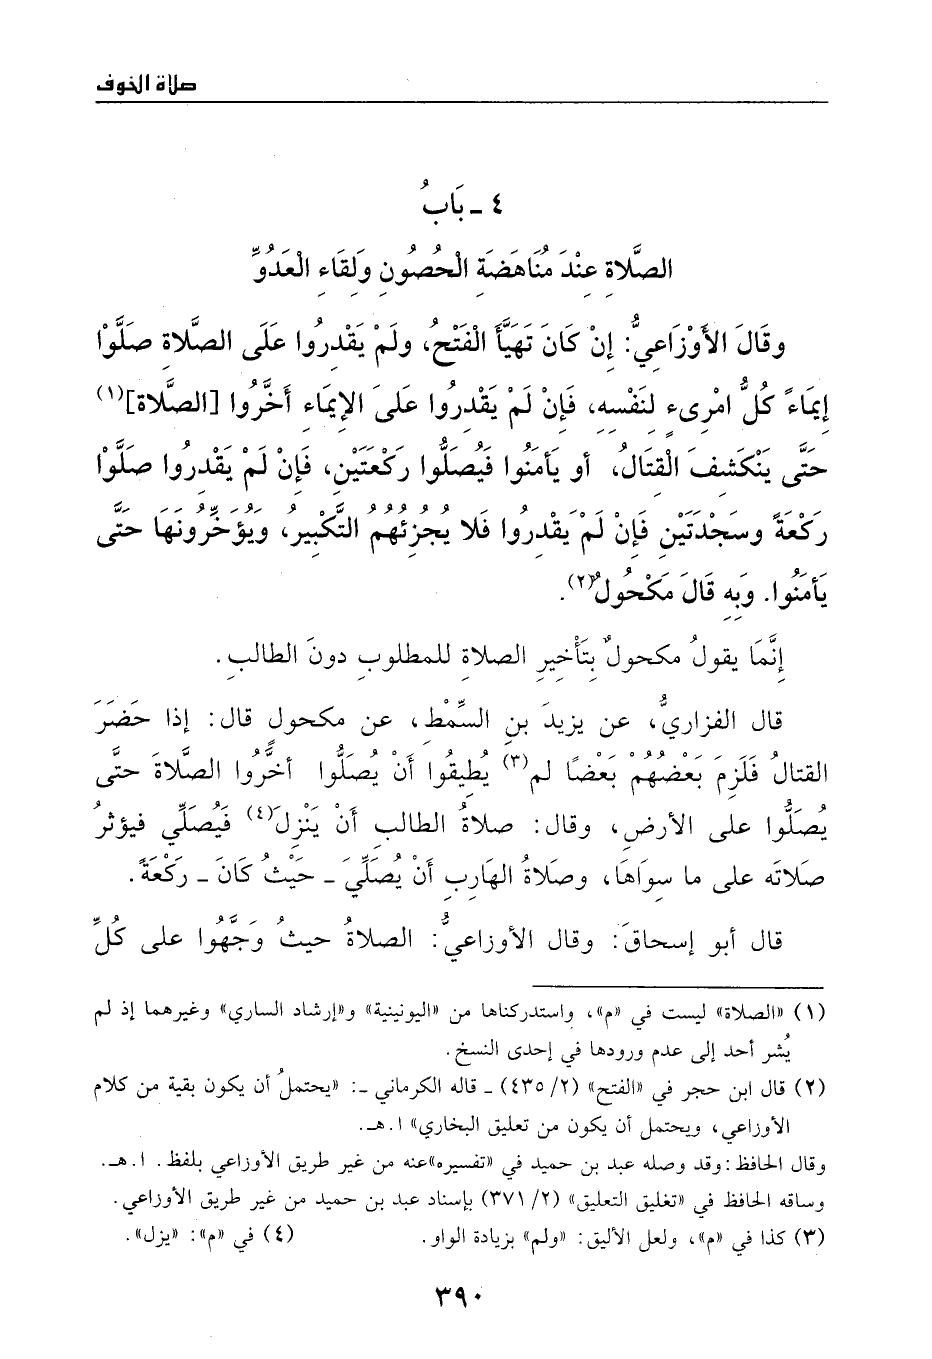 صلاة الخوف
٤ ـ بَابُ
الصَّلَاةِ عِنْدَ مُنَاهَضَةِ الْحُصُونِ وَلِقَاءِ الْعَدُوِّ
وقَالَ الأَوْزَاعِيُّ: إِنْ كَانَ تَهَيَّأَ الْفَتْحُ، ولَمْ يَقْدِرُوا عَلَى الصَّلاة صَلَّوْا
إِيمَاءً كُلُّ امْرِىءٍ لِنَفْسِهِ، فَإِنْ لَمْ يَقْدِرُوا عَلَى الإِيمَاءِ أَخَّرُوا [الصَّلاة](١)
حَتَّى يَنْكَشِفَ الْقِتَالُ، أو يَأمَنُوا فَيُصَلُّوا رَكْعَتَيْنِ، فَإِنْ لَمْ يَقْدِرُوا صَلَّوْا
رَكْعَةً وسَجْدَتَيْنِ فَإِنْ لَمْ يَقْدِرُوا فَلا يُجْزِئُهُم التَّكْبِيرُ، ويُؤَخِّرُونَهَا حَتَّى
يَأمَنُوا. وَبِهِ قَالَ مَكْحُولٌ(٢).
إِنَّمَا يقولُ مكحولٌ بِتَأْخِيرِ الصلاةِ للمطلوبِ دونَ الطالبِ.
قال الفزاريُّ، عن يزيدَ بنِ السِّمْطِ، عن مكحولٍ قال: إذا حَضَرَ
القتالُ فَلَزِمَ بَعْضُهُمْ بَعْضًا لم(٣) يُطِيقُوا أَنْ يُصَلُّوا أخَّرُوا الصَّلاةَ حتَّى
يُصَلُّوا على الأرضِ، وقال: صلاةُ الطالبِ أنْ يَنْزِلَ(٤) فَيُصَلِّي فيؤثرُ
صَلاتَه على ما سِوَاهَا، وصَلاةُ الهَارِبِ أنْ يُصَلِّيَ ـ حَيْثُ كَانَ ـ رَكْعَةً.
قال أبو إسحاقَ: وقال الأوزاعيُّ: الصلاةُ حيثُ وَجَّهُوا على كُلِّ
(١) «الصلاة» ليست في «م»، واستدركناها من «اليونينية» و«إرشاد الساري» وغيرهما إذ لم
يُشر أحد إلى عدم ورودها في إحدى النسخ.
(٢) قال ابن حجر في «الفتح» (٢/ ٤٣٥) ـ قاله الكرماني ـ: «يحتملُ أن يكون بقية من كلام
الأوزاعي، ويحتمل أن يكون من تعليق البخاري» ا.هـ.
وقال الحافظ: وقد وصله عبد بن حميد في «تفسيره» عنه من غير طريق الأوزاعي بلفظ. ا.هـ.
وساقه الحافظ في «تغليق التعليق» (٢/ ٣٧١) بإسناد عبد بن حميد من غير طريق الأوزاعي.
(٣) كذا في «م»، ولعل الأليق: «ولم» بزيادة الواو. (٤) في «م»: «يزل».
٣٩٠